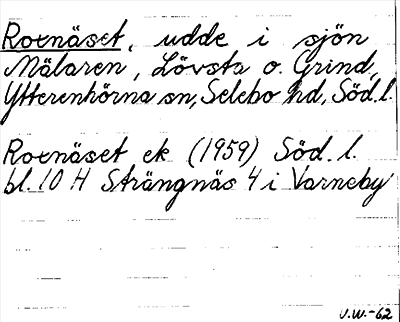 Roenäset, udde i sjön
Mälaren, Lövsta o. Grind,
Ytterenhörna sn, Selebo hd, Söd. l.
Roenäset ek (1959) Söd. l.
bl. 10 H Strängnäs 4 i Varneby
J.W.-62